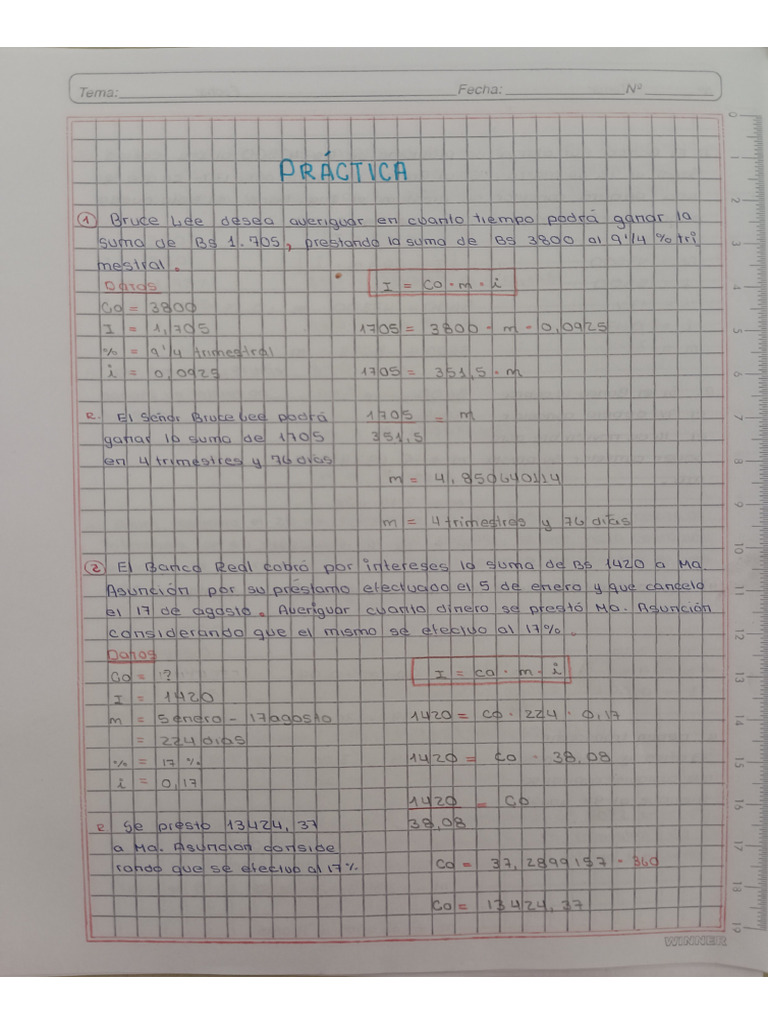 Tema: Fecha: Nº
PRÁCTICA
① Bruce Lee desea averiguar en cuanto tiempo podrá ganar la
suma de Bs 1.705, prestando la suma de Bs 3800 al 9'1/4 % tri
mestral.
Datos
I = Co · m · i
Co = 3800
I = 1,705
1705 = 3800 · m · 0,0925
% = 9'1/4 trimestral
i = 0,0925
1705 = 351,5 · m
R. El Señor Bruce Lee podrá
ganar la suma de 1705
en 4 trimestres y 76 dias
1705 = m
351,5
m = 4,850640114
m = 4 trimestres y 76 días
② El Banco Real cobró por intereses la suma de Bs 1420 a Ma.
Asunción por su préstamo efectuado el 5 de enero y que cancelo
el 17 de agosto. Averiguar cuanto dinero se prestó Ma. Asunción
considerando que el mismo se efectivo al 17%.
Datos
I = co · m · i
Co = ?
I = 1420
m = 5 enero - 17 agosto
= 224 dias
% = 17 %
i = 0,17
1420 = co · 224 · 0,17
1420 = co · 38,08
1420 = co
38,08
R. Se presto 13424,37
a Ma. Asuncion conside
rando que se efectivo al 17%.
Co = 37,2899157 · 360
Co = 13424,37
WINNER
0
1
2
3
4
5
6
7
8
9
10
11
12
13
14
15
16
17
18
19